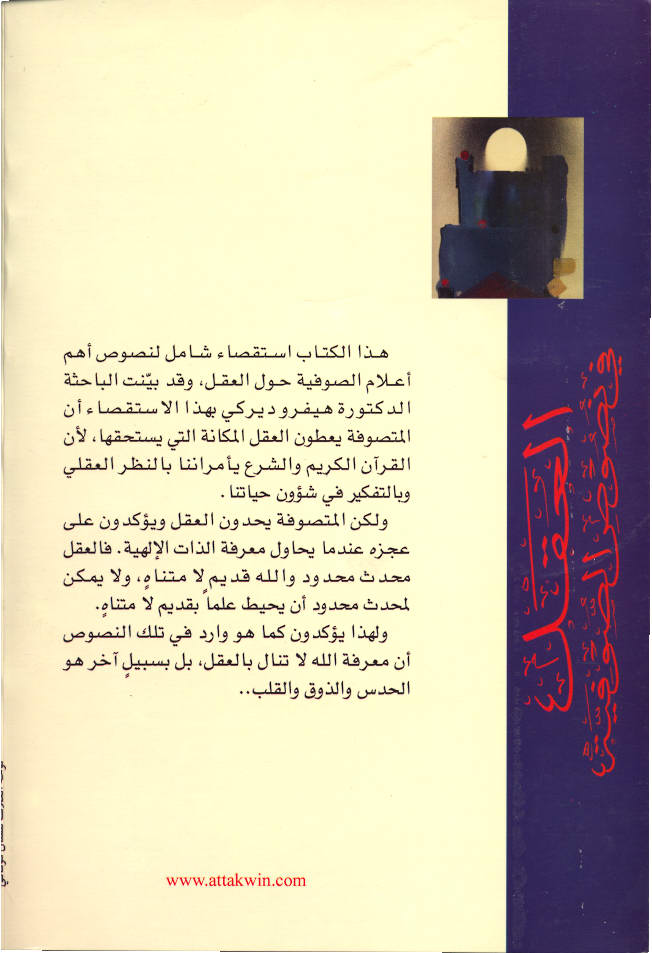 هذا الكتاب استقصاء شامل لنصوص أهم
أعلام الصوفية حول العقل، وقد بيّنت الباحثة
الدكتورة هيفرو ديركي بهذا الاستقصاء أن
المتصوفة يعطون العقل المكانة التي يستحقها، لأن
القرآن الكريم والشرع يأمراننا بالنظر العقلي
وبالتفكير في شؤون حياتنا.
ولكن المتصوفة يحدون العقل ويؤكدون على
عجزه عندما يحاول معرفة الذات الإلهية. فالعقل
محدث محدود والله قديم لا متناهٍ، ولا يمكن
لمحدث محدود أن يحيط علماً بقديم لا متناهٍ.
ولهذا يؤكدون كما هو وارد في تلك النصوص
أن معرفة الله لا تنال بالعقل، بل بسبيلٍ آخر هو
الحدس والذوق والقلب..
www.attakwin.com
العقل
في نصوص الصوفية